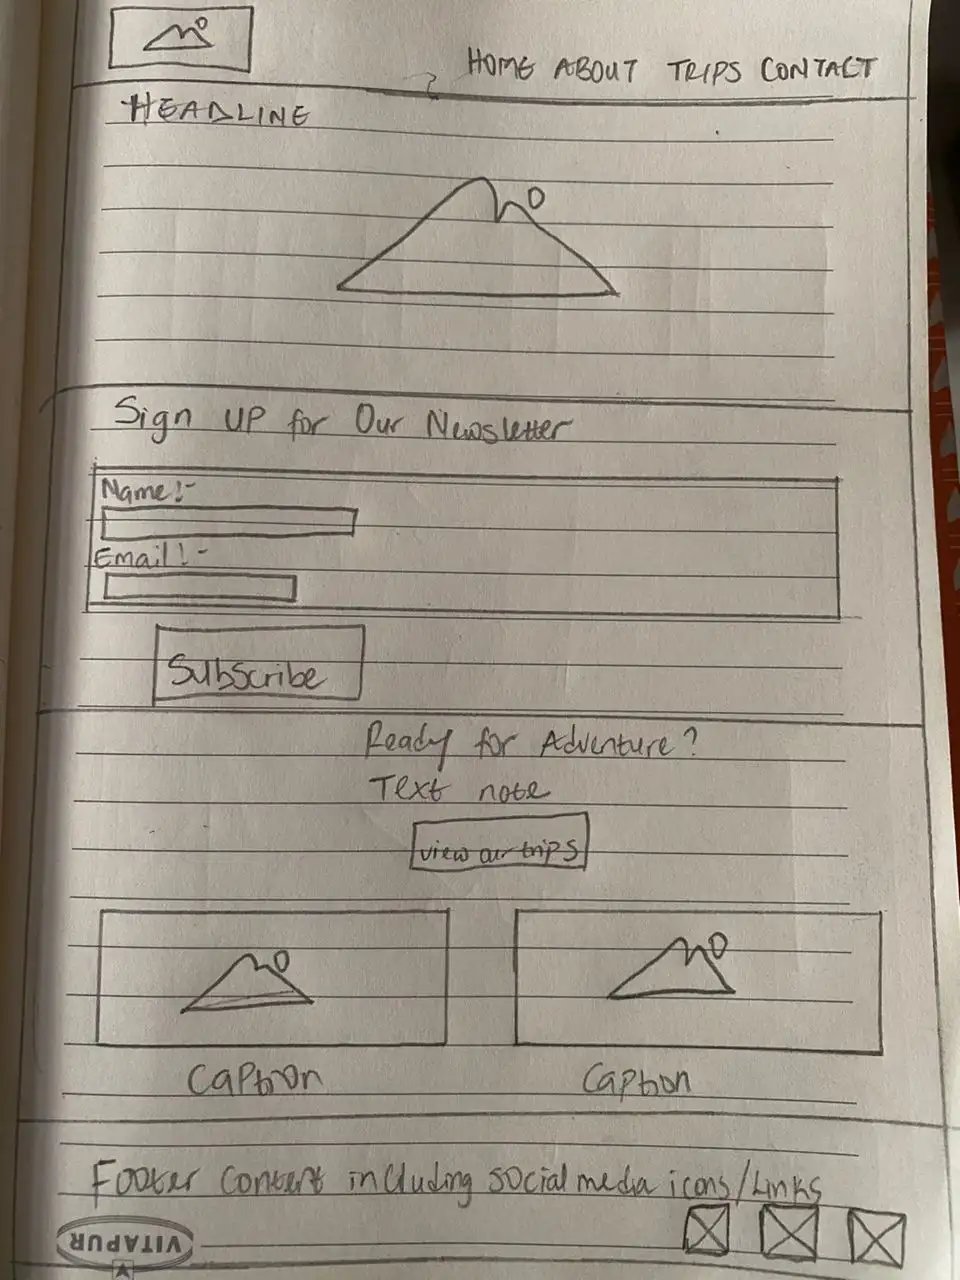 HOME ABOUT TRIPS CONTACT
HEADLINE
Sign UP for Our Newsletter
Name:-
Email:-
Subscribe
Ready for Adventure?
Text note
view our trips
Caption
Caption
Footer Content including social media icons/Links
VITAPUR